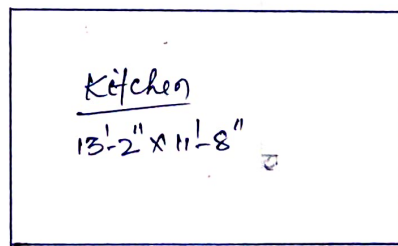 Kitchen
13'-2" x 11'-8"